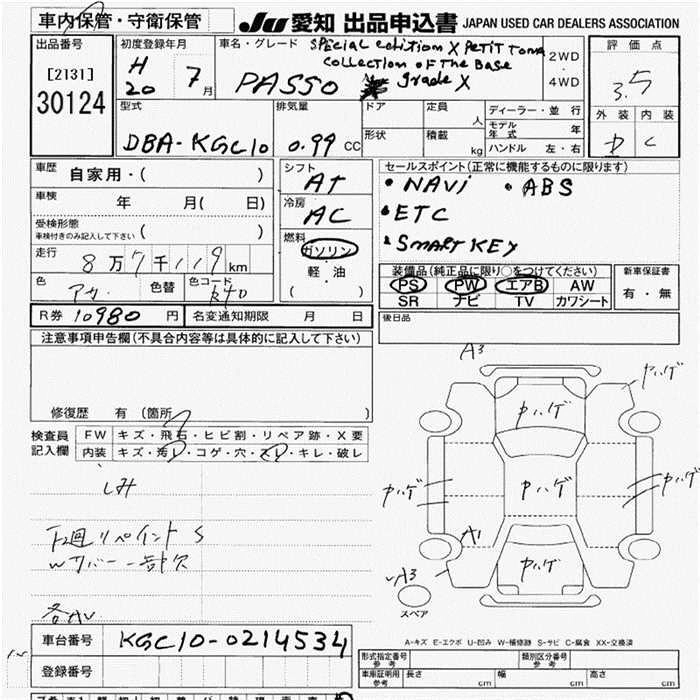 車内保管・守衛保管
JU 愛知 出品申込書 JAPAN USED CAR DEALERS ASSOCIATION
出品番号
[2131]
30124
初度登録年月
H 20 7月
車名・グレード
SPECIAL edition X PETIT TOMA
COLLECTION OF THE BASE
PASSO grade X
2WD
・
4WD
評価点
3.5
外装 内装
D C
型式
DBA-KGC10
排気量
0.99 CC
ドア 定員 人
形状 積載 kg
ディーラー・並行
モデル年式 年
ハンドル 左・右
車歴
自家用・( )
車検 年 月( 日)
受検形態
車検付きのみ記入して下さい ( )
走行
8万7千119km
色 アカ 色替 色コード R40
シフト
AT
冷房
AC
燃料
ガソリン
・
軽・油
( )
セールスポイント(正常に機能するものに限ります)
・NAVi ・ABS
・ETC
・SMART KEY
装備品(純正品に限り○をつけてください)
PS PW エアB AW
SR ナビ TV カワシート
新車保証書
有・無
R券 10980円 名変通知期限 月 日
後日品
注意事項申告欄(不具合内容等は具体的に記入して下さい)
修復歴 有(箇所 )
検査員記入欄
FW キズ・飛石・ヒビ割・リペア跡・X要
内装 キズ・汚レ・コゲ・穴・スレ・キレ・破レ
シミ
下廻リペイント S
Wリバー一部欠
A3
ヤハゲ
ヤハゲ
ヤハゲ ヤハゲ ヤハゲ
A1
ヤハゲ
A3
スペア
A-キズ E-エクボ U-凹み W-補修跡 S-サビ C-腐食 XX-交換済
車台番号 KGC10-0214534
登録番号
形式指定番号 参考 類別区分番号 参考
車庫証明用 参考 長さ cm 幅 cm 高さ cm